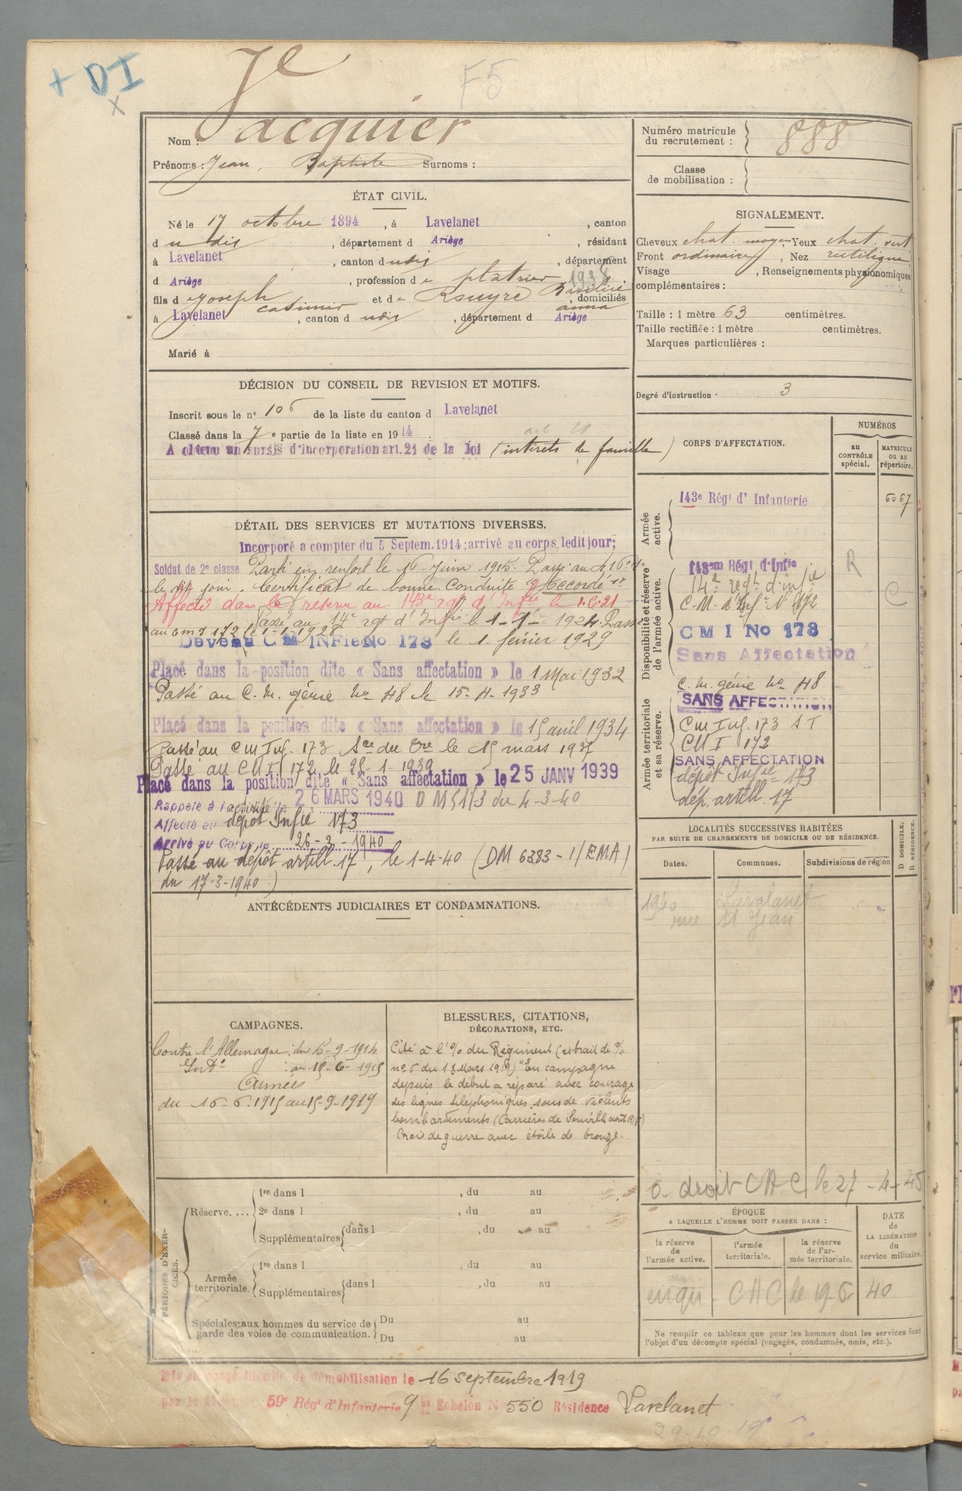 + DI
F5
Je
Nom : Jacquier
Prénoms : Jean, Baptiste Surnoms :
Numéro matricule
du recrutement : 888
Classe
de mobilisation :
ÉTAT CIVIL.
Né le 17 octobre 1894, à Lavelanet, canton
d u dis, département d Ariège, résidant
à Lavelanet, canton d udis, département
d Ariège, profession d e platrier 1938
fils d e Joseph Casimir et d e Rouyre anna, domiciliés
à Lavelanet, canton d udis, département d Ariège
Marié à
SIGNALEMENT.
Cheveux chat. moyen Yeux chat. vert
Front ordinaire, Nez rectiligne
Visage, Renseignements physionomiques
complémentaires :
Taille : 1 mètre 63 centimètres.
Taille rectifiée : 1 mètre centimètres.
Marques particulières :
Degré d'instruction : 3
DÉCISION DU CONSEIL DE REVISION ET MOTIFS.
Inscrit sous le n° 106 de la liste du canton d Lavelanet
Classé dans la 7e partie de la liste en 1914 art 21
A obtenu un sursis d'incorporation art. 21 de la loi (intérêts de famille)
DÉTAIL DES SERVICES ET MUTATIONS DIVERSES.
Incorporé a compter du 5 Septem. 1914; arrivé au corps ledit jour;
Soldat de 2e classe Parti en renfort le 16 Juin 1915. Passé au
le jour. Certificat de bonne Conduite accordé
Affecté dans la réserve au 143e rgt d'Infie le 1.6.21
Passé au 14e rgt d'Infie le 1-1-1924 Passé
au cm I 172 le 1-1-1928
Devenu C m INFie No 173 le 1 février 1929
Placé dans la position dite « Sans affectation » le 1 Mai 1932
Passé au C. m. génie No 48 le 15-4-1933
Placé dans la position dite « Sans affectation » le 15 avril 1934
Passé au Cm Inf. 173 le 15 mars 1937
Passé au CMI 172 le 28-1-1939
Placé dans la position dite « Sans affectation » le 25 JANV 1939
Rappelé à l'activité le 26 MARS 1940 DM 5113 du 4-3-40
Affecté au dépôt Infie 173
Arrivé au Corps le 26-3-1940
Passé au dépôt artill. 17, le 1-4-40 (DM 6383-1/EMA)
du 17-3-1940.)
CORPS D'AFFECTATION.
NUMÉROS
AU CONTRÔLE spécial.
MATRICULE OU AU répertoire.
Armée active.
143e Régt d'Infanterie 6067
Disponibilité et réserve de l'armée active.
143em Régt d'Infie R
14e regt d'infie
C.M. d'Infie No 172 C
C M I No 173
Sans Affectation
C. m. génie No 48
SANS AFFECTATION
Armée territoriale et sa réserve.
Cm Inf. 173 S T
CMI 172
SANS AFFECTATION
dépôt Infie 173
dép. artill. 17
LOCALITÉS SUCCESSIVES HABITÉES
PAR SUITE DE CHANGEMENTS DE DOMICILE OU DE RÉSIDENCE.
Dates. Communes. Subdivisions de région
D DOMICILE. R RÉSIDENCE.
1940 Lavelanet
rue St Jean
ANTÉCÉDENTS JUDICIAIRES ET CONDAMNATIONS.
CAMPAGNES.
Contre l'Allemagne : du 5-9-1914
Intre au 15-6-1915
Armées
du 16-6-1915 au 15-9-1919
BLESSURES, CITATIONS,
DÉCORATIONS, ETC.
Cité à l'% du Régiment (extrait de %
n° 6 du 18 Mars 1919) "En campagne
depuis le début a réparé avec courage
des lignes téléphoniques sous de violents
bombardements (Carrières de
Croix de guerre avec étoile de bronze.
a droit CAC le 27-4-45
PÉRIODES D'EXERCICES.
Réserve.... 1re dans l, du au
2e dans l, du au
Supplémentaires dans l, du au
Armée territoriale. 1re dans l, du au
Supplémentaires dans l, du au
Spéciales aux hommes du service de garde des voies de communication. Du au
Du au
ÉPOQUE
A LAQUELLE L'HOMME DOIT PASSER DANS :
la réserve de l'armée active.
l'armée territoriale.
la réserve de l'armée territoriale.
DATE de LA LIBÉRATION du service militaire.
CAC le 19-6 40
Ne remplir ce tableau que pour les hommes dont les services font
l'objet d'un décompte spécial (engagés, condamnés, omis, etc.).
Mis en congé illimité de démobilisation le 16 septembre 1919
par le dépôt 59e Régt d'Infanterie 9e Echelon N° 550 Résidence Lavelanet
29-10-19